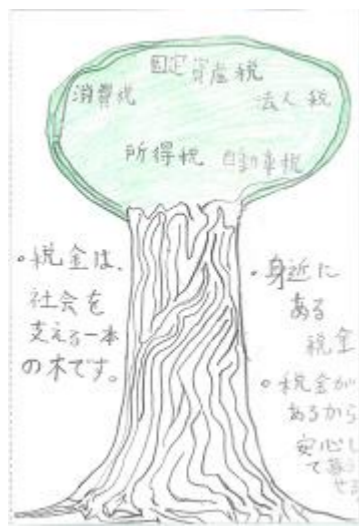 固定資産税
消費税
法人税
所得税
自動車税
・税金は、
社会を
支える一本
の木です。
・身近に
ある
税金
・税金が
あるから
安心し
て暮
せる